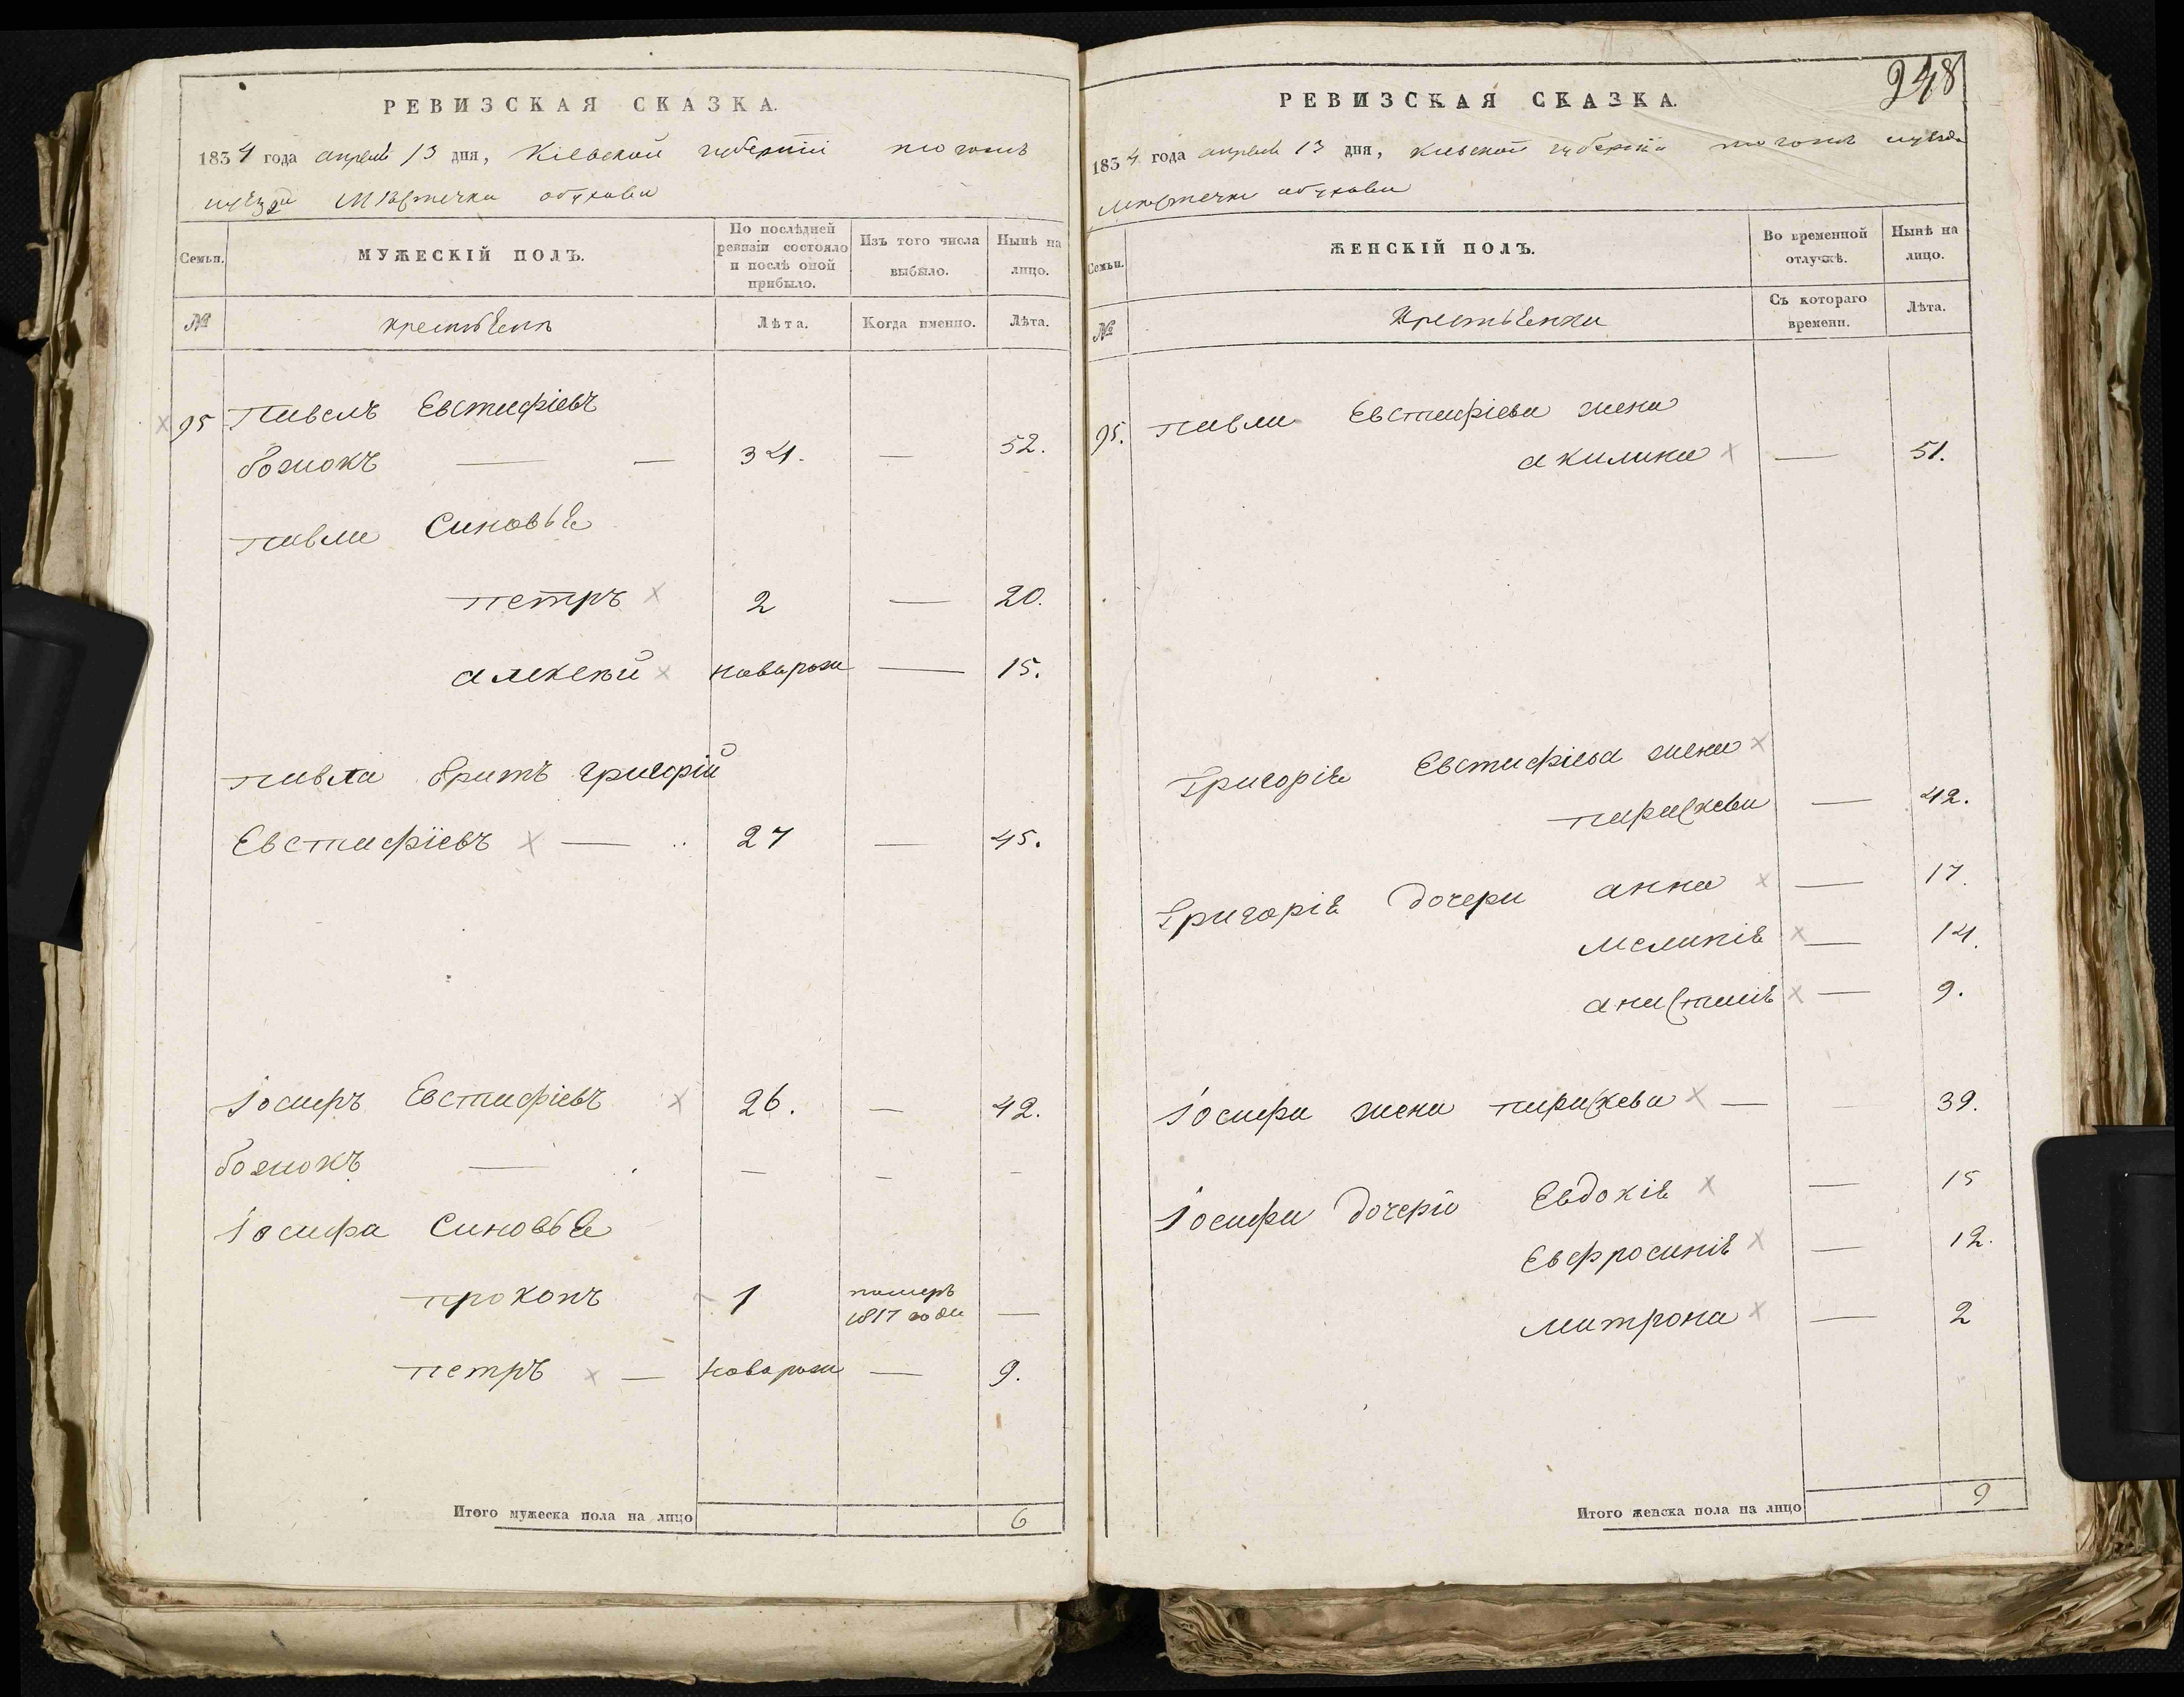 РЕВИЗСКАЯ СКАЗКА.
1834 года апреля 13 дня, Кіевской губерніи того жъ
уезда Мѣстечка обухова
Семьи. МУЖЕСКІЙ ПОЛЪ. По послѣдней ревизіи состояло и послѣ оной прибыло. Изъ того числа выбыло. Нынѣ на лицо.
№ крестьяне Лѣта. Когда именно. Лѣта.
95 Павелъ Евстафіевъ
божокъ — — 34. — 52.
павла Синовья
петръ 2 — 20.
алексей новорож — 15.
павла братъ григорій
Евстафіевъ — 27 — 45.
Іосифъ Евстафіевъ 26. — 42.
божокъ — — — —
Іосифа Синовья
прокопъ 1 померъ 1817 года —
петръ — новорож — 9.
Итого мужеска пола на лицо 6
248
РЕВИЗСКАЯ СКАЗКА.
1834 года апреля 13 дня, киевской губерніи того жъ уезда
мѣстечка обухова
Семьи. ЖЕНСКІЙ ПОЛЪ. Во временной отлучкѣ. Нынѣ на лицо.
№ Крестьянки Съ котораго времени. Лѣта.
95. павла Евстафіева жена
акилина — 51.
Григорія Евстафіева жена
параскева — 42.
Григорія дочери анна — 17.
меланія — 14.
анастасія — 9.
Іосифа жена параскева — — 39.
Іосифа дочери Евдокія — 15
Евфросинія — 12.
матрона — 2
Итого женска пола на лицо 9